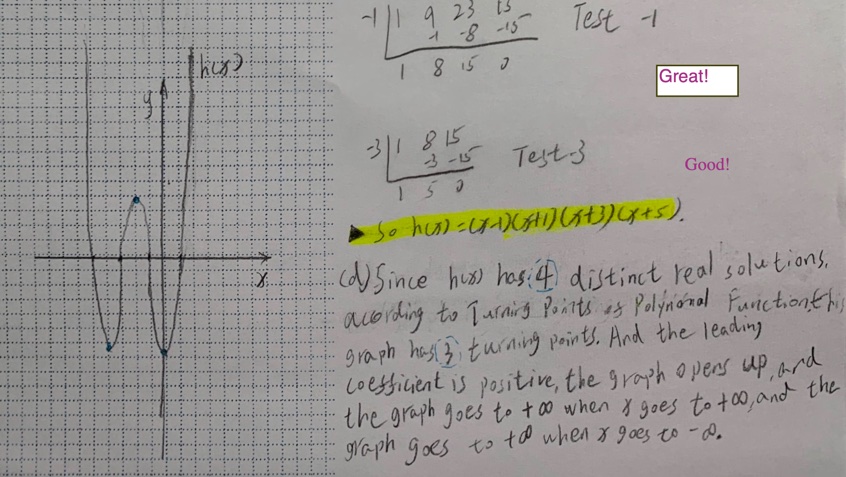 h(x)
y
x
-1 | 1 9 23 15 Test -1
-1 -8 -15
1 8 15 0
Great!
-3 | 1 8 15 Test -3
-3 -15
1 5 0
Good!
So h(x)=(x-1)(x+1)(x+3)(x+5).
(d) Since h(x) has 4 distinct real solutions,
acording to Turning Points of Polynomal Function, this
graph has 3 turning points. And the leading
coefficient is positive, the graph opens up, and
the graph goes to +∞ when x goes to +∞, and the
graph goes to +∞ when x goes to -∞.